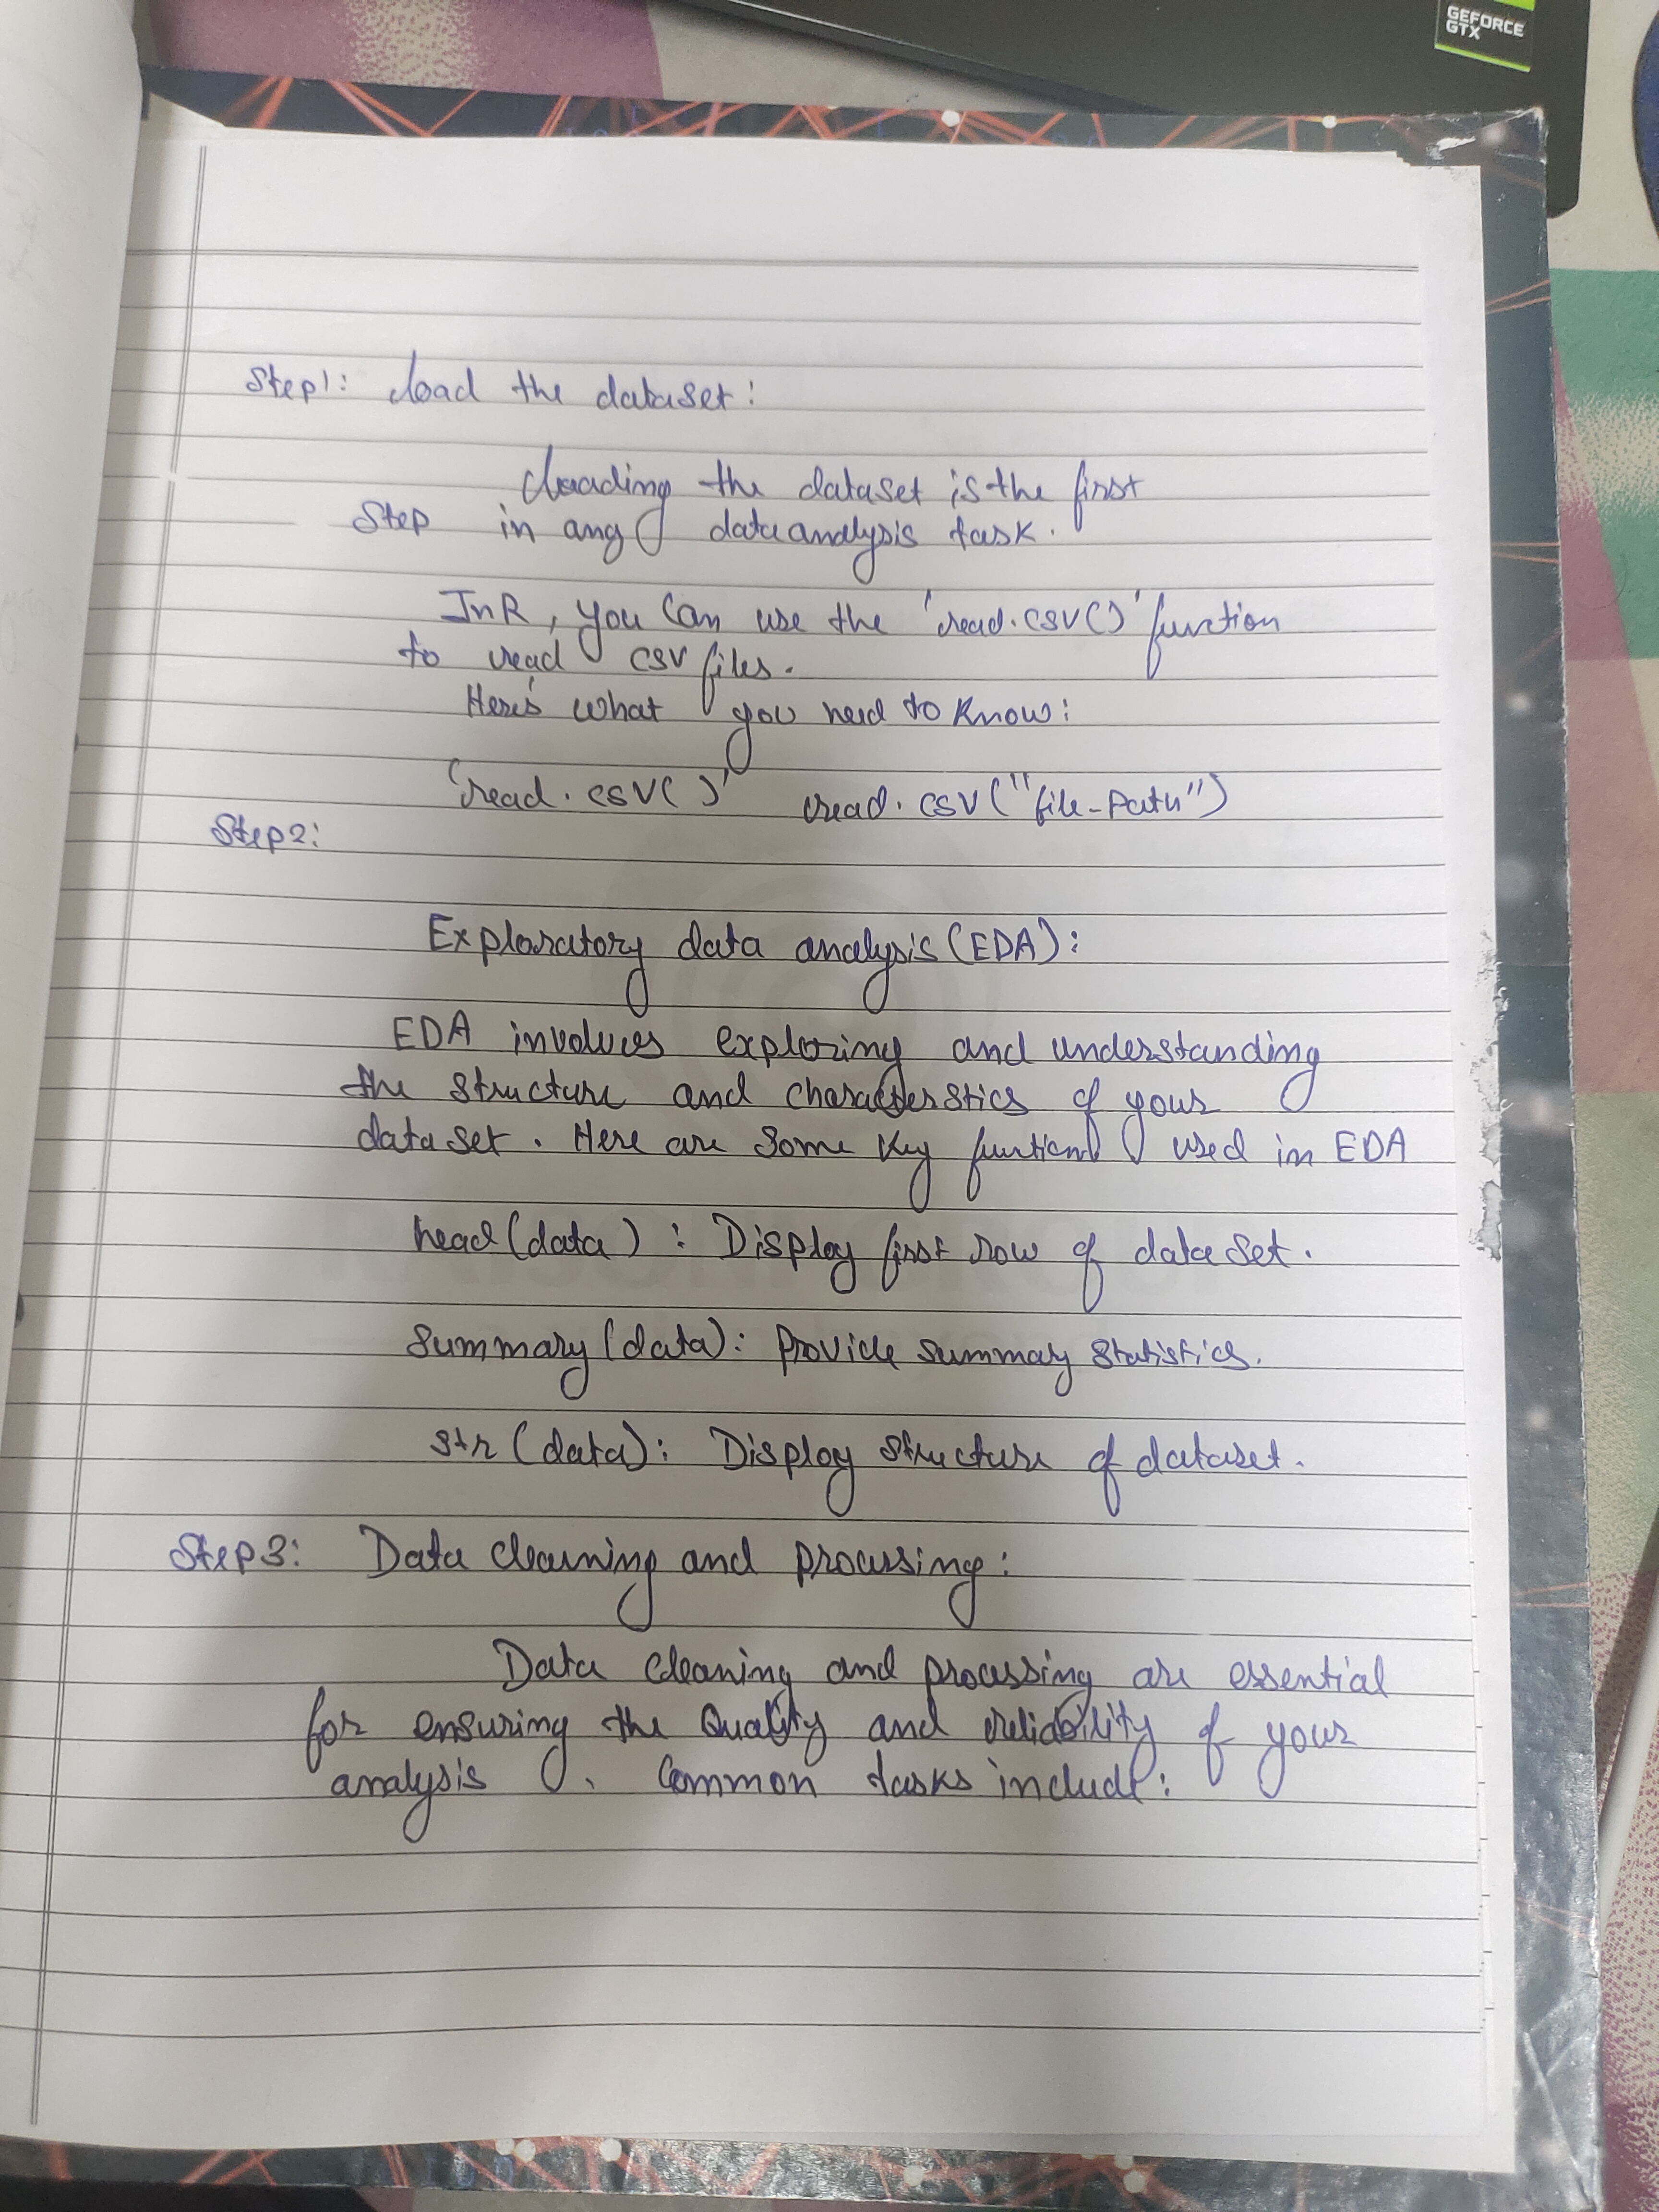 GEFORCE
GTX
Step1: Load the dataset:
Loading the dataset is the first
Step in any data analysis task.
In R, you can use the 'read.csv()' function
to read csv files.
Here's what you need to know:
'read.csv()' read.csv("file-path")
Step2:
Exploratory data analysis (EDA):
EDA involves exploring and understanding
the structure and characterstics of your
dataset. Here are some key functions used in EDA
head(data): Display first row of data set.
Summary(data): Provide summary statistics.
str(data): Display structure of dataset.
Step3: Data cleaning and processing:
Data cleaning and processing are essential
for ensuring the quality and reliability of your
analysis. Common tasks include: